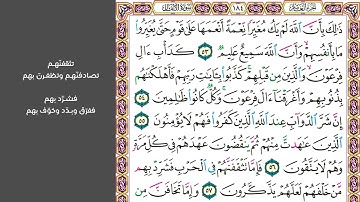 الجزء العاشر ١٨٤ سورة الأنفال
ذَٰلِكَ بِأَنَّ ٱللَّهَ لَمْ يَكُ مُغَيِّرًا نِّعْمَةً أَنْعَمَهَا عَلَىٰ قَوْمٍ حَتَّىٰ يُغَيِّرُوا۟
مَا بِأَنفُسِهِمْ وَأَنَّ ٱللَّهَ سَمِيعٌ عَلِيمٌ ٥٣ كَدَأْبِ ءَالِ
فِرْعَوْنَ وَٱلَّذِينَ مِن قَبْلِهِمْ كَذَّبُوا۟ بِـَٔايَٰتِ رَبِّهِمْ فَأَهْلَكْنَٰهُم
بِذُنُوبِهِمْ وَأَغْرَقْنَآ ءَالَ فِرْعَوْنَ وَكُلٌّ كَانُوا۟ ظَٰلِمِينَ ٥٤
إِنَّ شَرَّ ٱلدَّوَآبِّ عِندَ ٱللَّهِ ٱلَّذِينَ كَفَرُوا۟ فَهُمْ لَا يُؤْمِنُونَ ٥٥
ٱلَّذِينَ عَٰهَدتَّ مِنْهُمْ ثُمَّ يَنقُضُونَ عَهْدَهُمْ فِى كُلِّ مَرَّةٍ
وَهُمْ لَا يَتَّقُونَ ٥٦ فَإِمَّا تَثْقَفَنَّهُمْ فِى ٱلْحَرْبِ فَشَرِّدْ بِهِم
مَّنْ خَلْفَهُمْ لَعَلَّهُمْ يَذَّكَّرُونَ ٥٧ وَإِمَّا تَخَافَنَّ مِن
تثقفنّهم
تصادفنّهم وتظفرنّ بهم
فشرّد بهم
ففرّق وبدّد وخوّف بهم